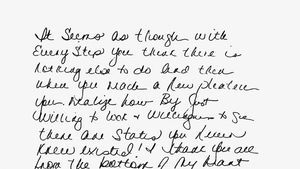 It Seems as though with
Every Step you think there is
nothing else to do and then
when you reach a New plateau
you realize how By Just
Willing to look & Willingness to See
there are States you Never
Knew existed! I thank you all
from The bottom of My Heart